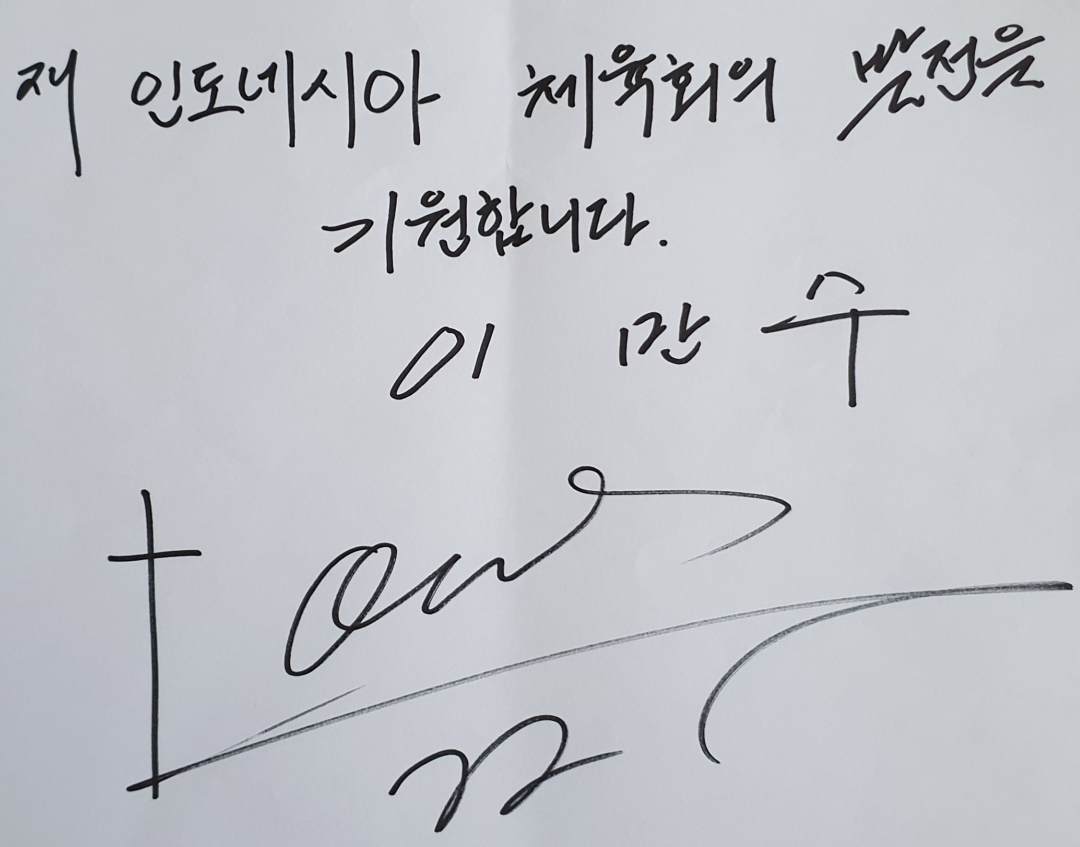 재 인도네시아 체육회의 발전을
기원합니다.
이 만 수
22